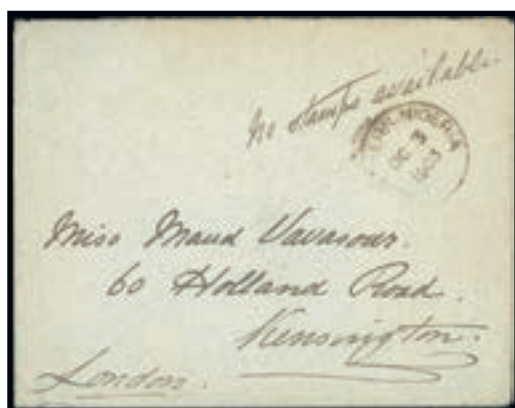 No stamps available.
NIGERIA
DE 3
1903
Miss Maud Vavasour.
60 Holland Road.
Kensington.
London.